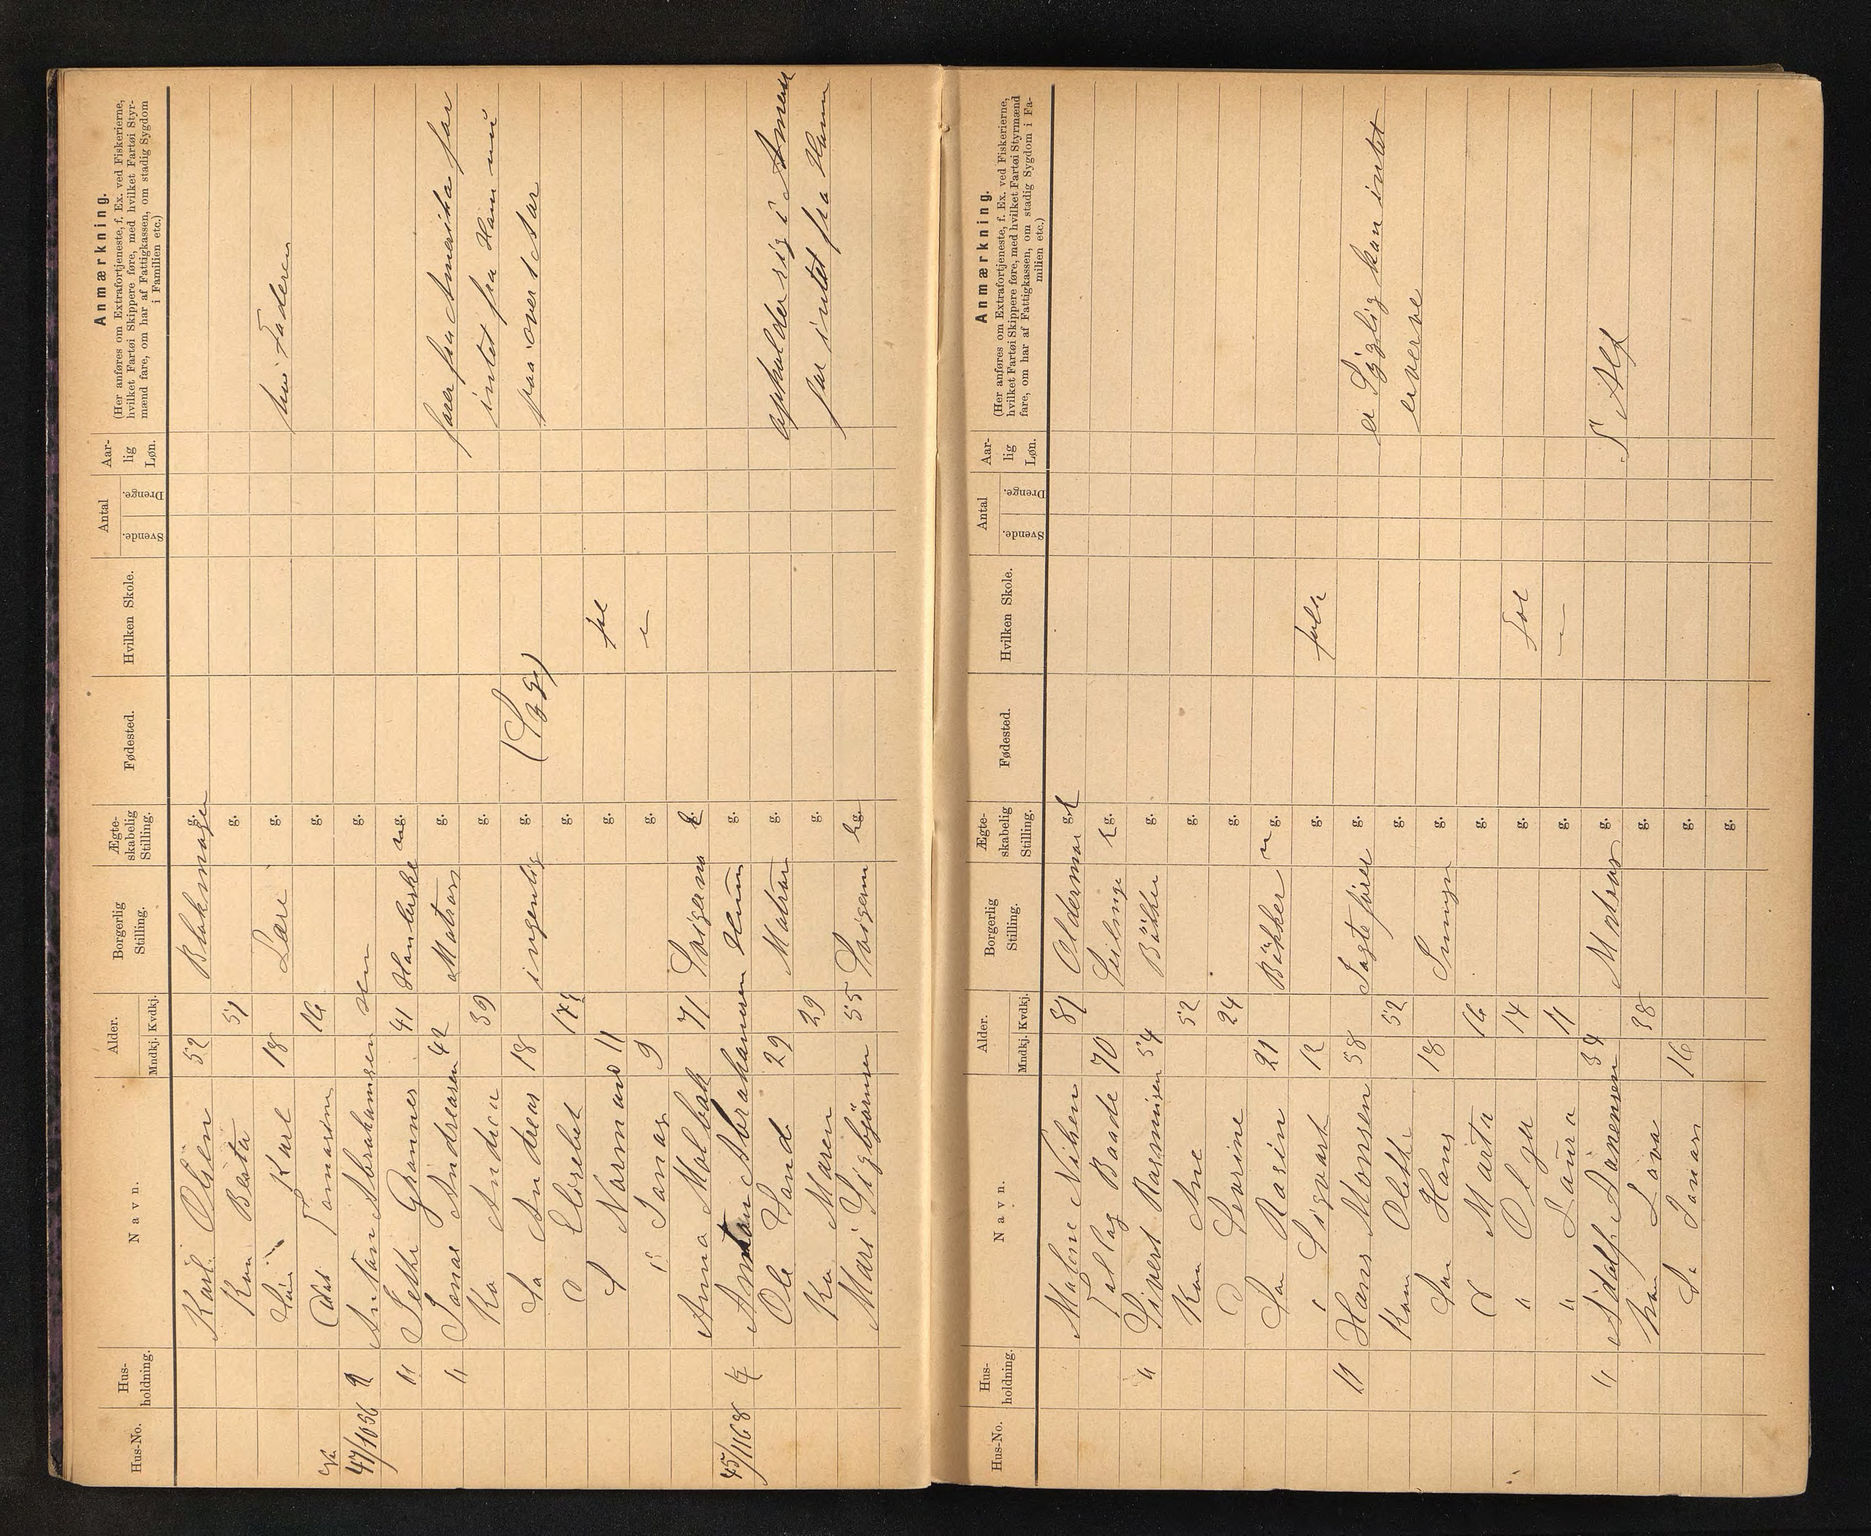 Hus-No. Hus-holdning. Navn. Alder. Mndkj. Kvdkj. Borgerlig Stilling. Ægte-skabelig Stilling. Fødested. Hvilken Skole. Antal Svende. Drenge. Aar-lig Løn. Anmærkning.
(Her anføres om Extrafortjeneste, f. Ex. ved Fiskerierne,
hvilket Fartøi Skippere føre, med hvilket Fartøi Styr-
mænd fare, om har af Fattigkassen, om stadig Sygdom
i Familien etc.)
Karl Olsen 52 Blokmager g.
Kon Berta 51 g.
Søn Karl 18 Lære g. hos Faderen
Dat Tomasine 16 g.
47/1056 Anton Abrahamsen g.
" Jethe Grannes 41 g.
" Jonas Andreasen 42 Matros g. farer fra Amerika faar
Ko Andrea 39 g. intet fra Ham nu
Sø Andreas 18 ingenting g. (Syg) paa over 1 Aar
D Elisebet g.
S Normand 11 g. fol
" Jonas 9 g. "
Anna Molbak 71 Svigermo g.
45/1168 Anton Abrahamsen Huus g.
Ole Sand 29 Matros g. opholder sig i Amerik
Ko Maren 29 g. faar intet fra Ham
Mari Sigbjörnsen 55 Svigerm g.
Hus-No. Hus-holdning. Navn. Alder. Mndkj. Kvdkj. Borgerlig Stilling. Ægte-skabelig Stilling. Fødested. Hvilken Skole. Antal Svende. Drenge. Aar-lig Løn. Anmærkning.
(Her anføres om Extrafortjeneste, f. Ex. ved Fiskerierne,
hvilket Fartøi Skippere føre, med hvilket Fartøi Styrmænd
fare, om har af Fattigkassen, om stadig Sygdom i Fa-
milien etc.)
Malene Nilsen 81 Oldermor g.
Tallag Baade 70 g.
" Sivert Rasmusen 54 Bökker g.
Kon Ane 52 g.
D Sevrine 24 g.
Søn Rasin 21 Bökker g.
" Sigvart 12 g. folk
" Hans Monsen 58 Jagtefører g. er Syglig kan intet
Kone Olethe 52 g. erverve
Søn Hans 18 g.
D Marta 16 g.
" Olga 14 g. Fol
" Laura 11 g. "
" Adolf Aanensen 34 Matros g. S Alf
kon Lava 38 g.
Sø Jonas 16 g.
g.